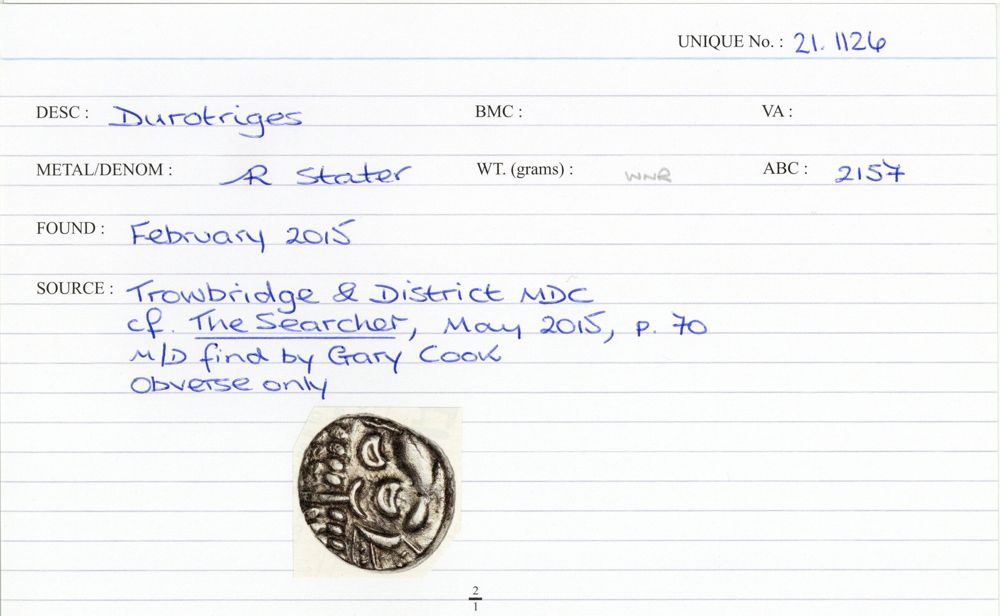 UNIQUE No. : 21. 1126
DESC : Durotriges BMC : VA :
METAL/DENOM : AR Stater WT. (grams) : WNR ABC : 2157
FOUND : February 2015
SOURCE : Trowbridge & District MDC
cf. The Searcher, May 2015, p. 70
M/D find by Gary Cook
Obverse only
2
1